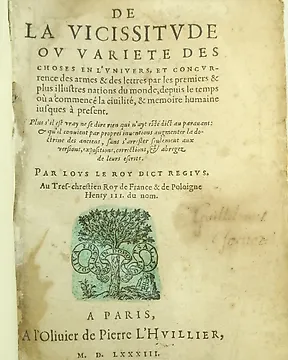 DE
LA VICISSITVDE
OV VARIETE DES
CHOSES EN L'VNIVERS, ET CONCVR-
rence des armes & des lettres par les premiers &
plus illustres nations du monde, depuis le temps
où a commencé la ciuilité, & memoire humaine
iusques à present.
Plus s'il est vray ne se dire rien qui n'ayt esté dict au parauant:
& qu'il conuient par propres inuentions augmenter la do-
ctrine des anciens, sans s'arrester seulement aux
versions, expositions, corrections, & abregez
de leurs escrits.
PAR LOYS LE ROY DICT REGIVS,
Au Tres-chrestien Roy de France & de Poloigne
Henry III. du nom.
A PARIS,
A l'Oliuier de Pierre L'HVILLIER,
M. D. LXXXIII.